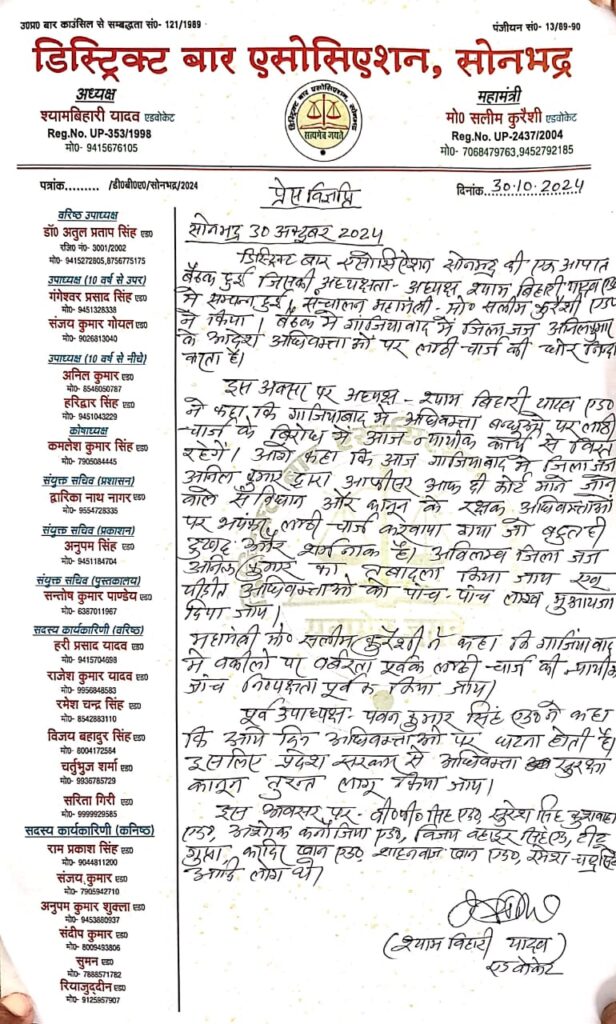 उ०प्र० बार काउंसिल से सम्बद्धता सं०- 121/1989
पंजीयन सं०- 13/89-90
डिस्ट्रिक्ट बार एसोसिएशन, सोनभद्र
अध्यक्ष
श्यामबिहारी यादव एडवोकेट
Reg.No. UP-353/1998
मो०- 9415676105
डिस्ट्रिक्ट बार एसोसिएशन, सोनभद्र
सत्यमेव जयते
महामंत्री
मो० सलीम कुरैशी एडवोकेट
Reg.No. UP-2437/2004
मो०- 7068479763,9452792185
पत्रांक......... /डी०बी०ए०/सोनभद्र/2024
प्रेस विज्ञप्ति
दिनांक 30.10.2024
वरिष्ठ उपाध्यक्ष
डॉ० अतुल प्रताप सिंह एड०
रजि० नं०- 3001/2002
मो०- 9415272805,8756775175
उपाध्यक्ष (10 वर्ष से उपर)
गंगेश्वर प्रसाद सिंह एड०
मो०- 9451328338
संजय कुमार गोयल एड०
मो०- 9026813040
उपाध्यक्ष (10 वर्ष से नीचे)
अनिल कुमार एड०
मो०- 8546050787
हरिद्वार सिंह एड०
मो०- 9451043229
कोषाध्यक्ष
कमलेश कुमार सिंह एड०
मो०- 7905084445
संयुक्त सचिव (प्रशासन)
द्वारिका नाथ नागर एड०
मो०- 9554728335
संयुक्त सचिव (प्रकाशन)
अनुपम सिंह एड०
मो०- 9451184704
संयुक्त सचिव (पुस्तकालय)
सन्तोष कुमार पाण्डेय एड०
मो०- 6387011967
सदस्य कार्यकारिणी (वरिष्ठ)
हरी प्रसाद यादव एड०
मो०- 9415704698
राजेश कुमार यादव एड०
मो०- 9956848583
रमेश चन्द्र सिंह एड०
मो०- 8542883110
विजय बहादुर सिंह एड०
मो०- 8004172584
चर्तुभुज शर्मा एड०
मो०- 9936785729
सरिता गिरी एड०
मो०- 9999929585
सदस्य कार्यकारिणी (कनिष्ठ)
राम प्रकाश सिंह एड०
मो०- 9044811200
संजय कुमार एड०
मो०- 7905942710
अनुपम कुमार शुक्ला एड०
मो०- 9453680937
संदीप कुमार एड०
मो०- 8009493806
सुमन एड०
मो०- 7888571782
रियाजुद्दीन एड०
मो०- 9125957907
सोनभद्र 30 अक्टूबर 2024
डिस्ट्रिक्ट बार एसोसिएशन सोनभद्र की एक आपात
बैठक हुई जिसकी अध्यक्षता- अध्यक्ष श्याम बिहारी यादव एड०
में सम्पन्न हुई। संचालन महामंत्री- मो० सलीम कुरैशी एड०
ने किया। बैठक में गाजियाबाद में जिला जज अनिल कुमार
के आदेश अधिवक्ताओं पर लाठी-चार्ज की घोर निंदा
करता है।
इस अवसर पर अध्यक्ष- श्याम बिहारी यादव एड०
ने कहा कि गाजियाबाद में अधिवक्ता बन्धुओं पर लाठी
-चार्ज के विरोध में आज न्यायिक कार्य से विरत
रहेगें। आगे कहा कि आज गाजियाबाद में जिला जज
अनिल कुमार द्वारा आफीसर आफ दी कोर्ट माने जाने
वाले संविधान और कानून के रक्षक अधिवक्ताओं
पर लाठी-चार्ज करवाया गया जो बहुत ही
दुखद और शर्मनाक है। अविलम्ब जिला जज
अनिल कुमार का तबादला किया जाय एवं
पीड़ित अधिवक्ताओं को पांच-पांच लाख मुआवजा
दिया जाय।
महामंत्री मो० सलीम कुरैशी ने कहा कि गाजियाबाद
में वकीलों पर बर्बरता पूर्वक लाठी-चार्ज की न्यायिक
जांच निष्पक्षता पूर्वक किया जाय।
पूर्व उपाध्यक्ष- पवन कुमार सिंह एड० ने कहा
कि आये दिन अधिवक्ताओं पर घटना होती है।
इसलिए प्रदेश सरकार से अधिवक्ता सुरक्षा
कानून तुरन्त लागू किया जाय।
इस अवसर पर- वी०पी० सिंह एड०, सुरेश सिंह कुशवाहा
एड०, अशोक कनौजिया एड०, विजय बहादुर सिंह एड०, टीटू
गुप्ता, कादिर खान एड०, शाहनवाज खान एड०, रमेश चन्द्र सिंह
आदि लोग थे।
(श्याम बिहारी यादव)
एडवोकेट